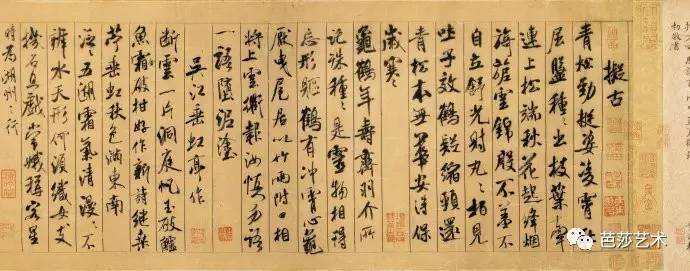 擬古
青松勁挺姿凌霄恥
屈盤種々出枝葉牽
連上松端秋花起絳烟
旖旎雲錦殷不羞不
自立舒光射丸々柏見
吐子效鶴疑縮頸還
青松本無華安得保
歲寒
龜鶴年壽齊羽介所
託殊種々是靈物相得
忘形軀鶴有沖霄心龜
厭曳尾居以竹兩附口相
將上雲衢報汝慎勿語
一語墮泥塗
吳江垂虹亭作
斷雲一片洞庭帆玉破鱸
魚霜破柑好作新詩繼桑
苧垂虹秋色滿東南
泛々五湖霜氣清漫々不
辨水天形何須織女支
機石且戲常娥稱客星
時為湖州之行
芭莎艺术